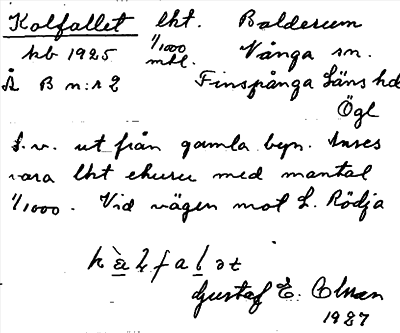 Kolfallet lht. Baldersum
kb 1925 1/1000 mtl. Vånga sn.
Å B n:r 2 Finspånga Läns hd
Ögl
S.v. ut från gamla byn. Anses
vara lht med mantal
1/1000. Vid vägen mot L. Rödja
Gustaf E.
1927